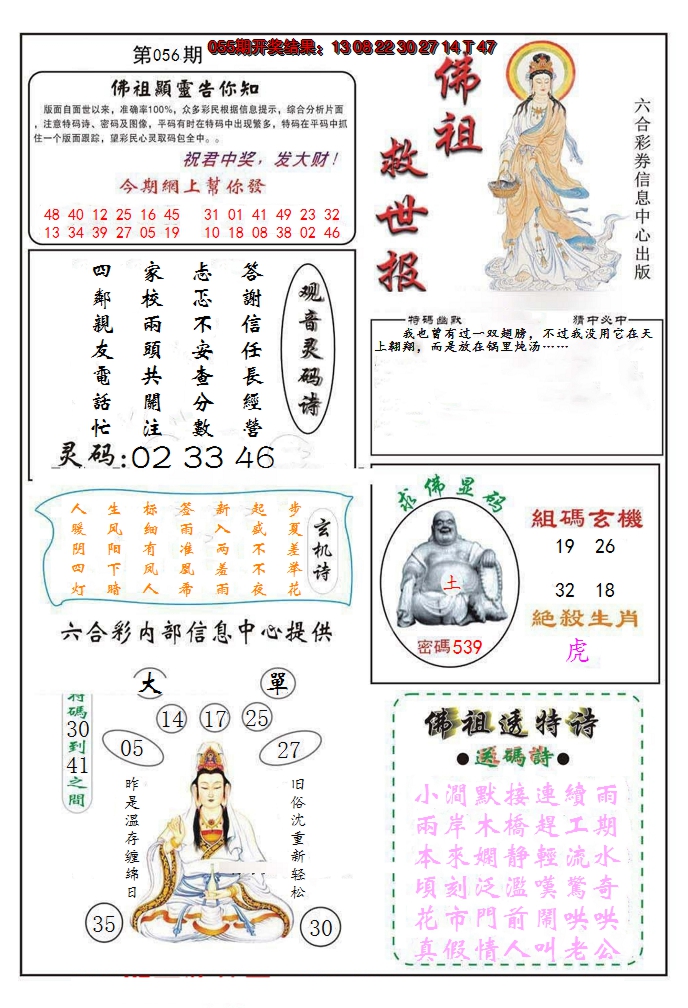 第056期
055期开奖结果：13 08 22 30 27 14 T 47
佛祖顯靈告你知
版面自面世以来，准确率100%，众多彩民根据信息提示，综合分析片面
，注意特码诗、密码及图像，平码有时在特码中出现繁多，特码在平码中抓
住一个版面跟踪，望彩民心灵取码包全中。。
祝君中奖，发大财！
今期網上幫你發
48 40 12 25 16 45 31 01 41 49 23 32
13 34 39 27 05 19 10 18 08 38 02 46
佛祖
救世报
六合彩券信息中心出版
四鄰親友電話忙
家校兩頭共關注
忐忑不安查分數
答謝信任長經營
观音灵码诗
灵码:02 33 46
特碼幽默
猜中必中
我也曾有过一双翅膀，不过我没用它在天
上翱翔，而是放在锅里炖汤……
人暖阴四灯
生风阳下暗
标细有凤人
答雨准凰希
新入两羞雨
起感不不夜
步夏差举花
玄机诗
六合彩内部信息中心提供
求佛显码
土
密碼539
組碼玄機
19 26
32 18
絶殺生肖
虎
大
單
特碼30到41之間
14 17 25
05
27
昨是温存缠绵日
旧俗沈重新轻松
35
30
佛祖透特诗
●送碼詩●
小澗默接連續雨
兩岸木橋趕工期
本來嫻静輕流水
頃刻泛濫嘆驚奇
花市門前鬧哄哄
真假情人叫老公